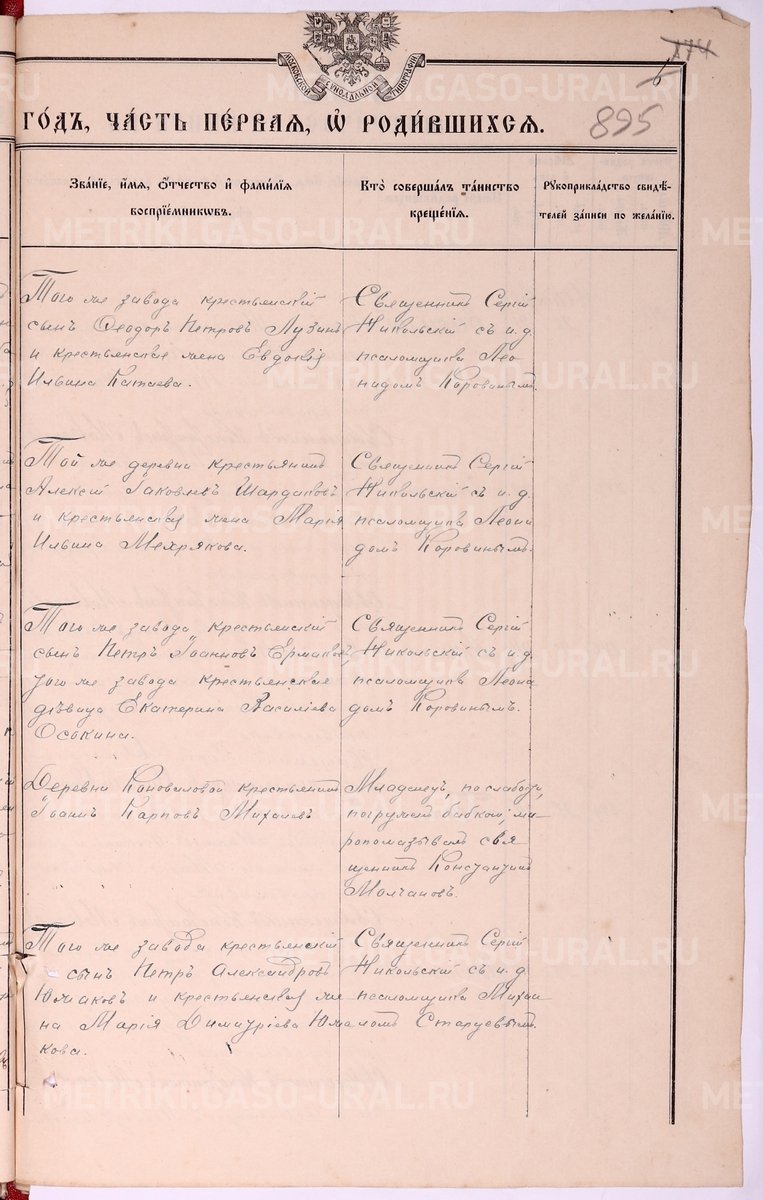 МОСКОВСКОЙ СѴНОДАЛЬНОЙ ТИПОГРАФІИ
895
ГО́ДЪ, ЧА́СТЬ ПЕ́РВАЯ, Ѡ҆ РОДИ́ВШИХСЯ.
Зва́нїе, и҆́мя, ѻ҆́тчество и҆ фами́лїя
воспрїе́мникѡвъ.
Кто̀ соверша́лъ та́инство
креще́нїя.
Рукоприкла́дство свидѣ́-
телей за́писи по жела́нїю.
Того же завода крестьянскій
сынъ Ѳеодоръ Петровъ Лузинъ
и крестьянская жена Евдокія
Ильина Катаева.
Священникъ Сергій
Никольскій съ и.д.
псаломщика Лео
нидомъ Коровинымъ.
Той же деревни крестьянинъ
Алексій Іаковлевъ Шардаковъ
и крестьянская жена Марія
Ильина Мехрякова.
Священникъ Сергій
Никольскій съ и.д.
псаломщика Леони
домъ Коровинымъ.
Того же завода крестьянскій
сынъ Петръ Іоанновъ Ермаковъ,
того же завода крестьянская
дѣвица Екатерина Василіева
Осокина.
Священникъ Сергій
Никольскій съ и.д.
псаломщика Леони
домъ Коровинымъ.
Деревни Коноваловой крестьянинъ
Іоаннъ Карповъ Михалевъ
Младенец, по слабости,
погружен бабкой; ми
ропомазывал свя
щенникъ Константинъ
Молчановъ.
Того же завода крестьянскій
сынъ Петръ Александровъ
Южаковъ и крестьянская же
на Марія Димитріева Южа
кова.
Священникъ Сергій
Никольскій съ и.д.
псаломщика Михаи
ломъ Старцевымъ.
METRIKI.GASO-URAL.RU